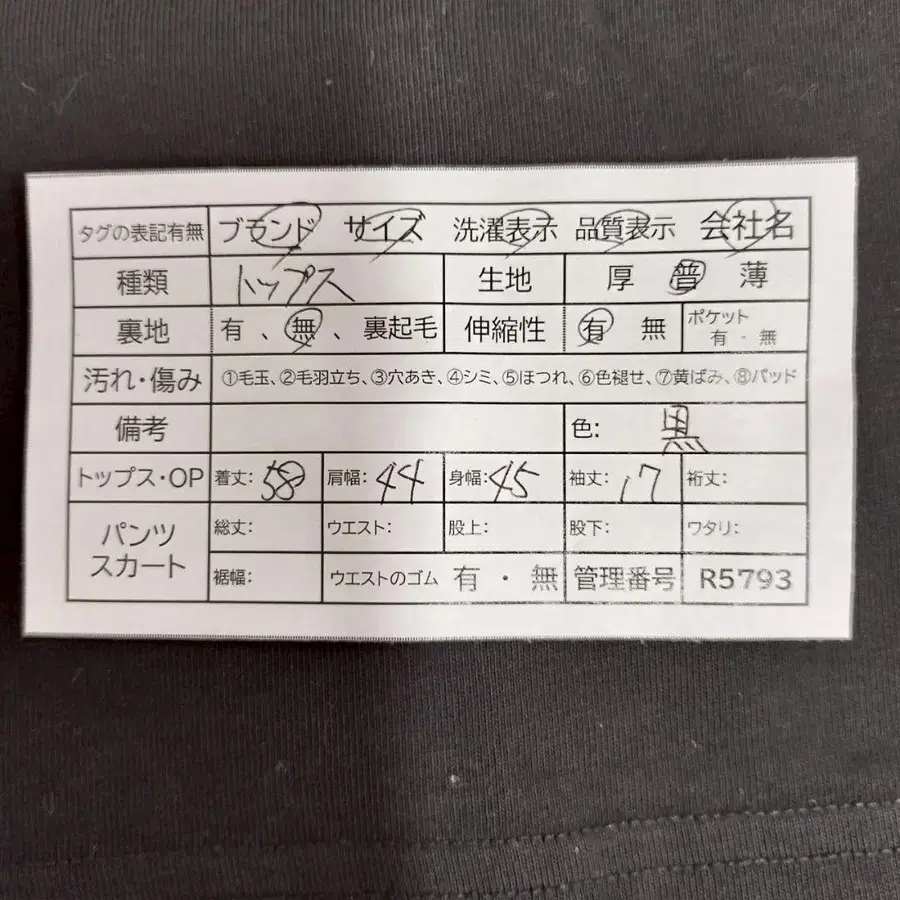 タグの表記有無 ブランド サイズ 洗濯表示 品質表示 会社名
種類 トップス 生地 厚 普 薄
裏地 有 、 無 、 裏起毛 伸縮性 有 無 ポケット 有 ・ 無
汚れ・傷み ①毛玉、②毛羽立ち、③穴あき、④シミ、⑤ほつれ、⑥色褪せ、⑦黄ばみ、⑧パッド
備考 色: 黒
トップス・OP 着丈: 58 肩幅: 44 身幅: 45 袖丈: 17 裄丈:
パンツ スカート 総丈: ウエスト: 股上: 股下: ワタリ:
裾幅: ウエストのゴム 有 ・ 無 管理番号 R5793